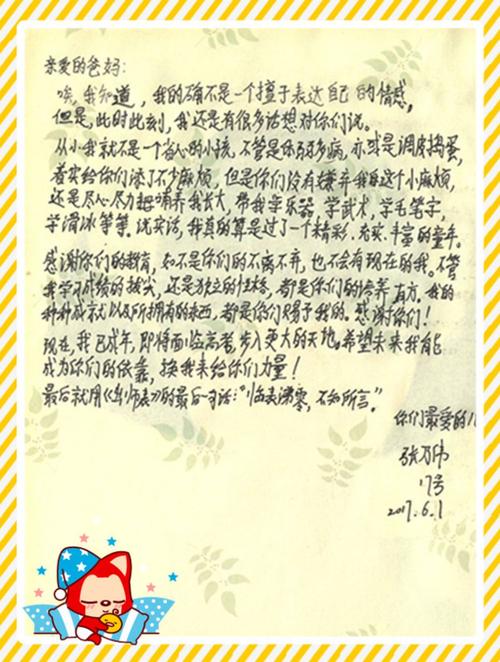 亲爱的爸妈：
唉，我知道，我的确不是一个擅于表达自己的情感，
但是，此时此刻，我还是有很多话想对你们说。
从小我就不是一个省心的小孩，不管是体弱多病，亦或是调皮捣蛋，
着实给你们添了不少麻烦，但是你们没有嫌弃我这个小麻烦，
还是尽心尽力把哺养我长大，带我学乐器，学武术，学毛笔字，
学滑冰等等。说实话，我真的算是过了一个精彩、充实、丰富的童年。
感谢你们的教育，如不是你们的不离不弃，也不会有现在的我。不管
我学习成绩的拔尖，还是独立的性格，都是你们的培养有方，我的
种种成就以及所拥有的东西，都是你们赐予我的。感谢你们！
现在，我已成年，即将面临高考，步入更大的天地，希望未来我能
成为你们的依靠，换我来给你们力量！
最后就用《出师表》的最后一句话：“临表涕零，不知所言”。
你们最爱的儿
张万伟
17号
2017.6.1